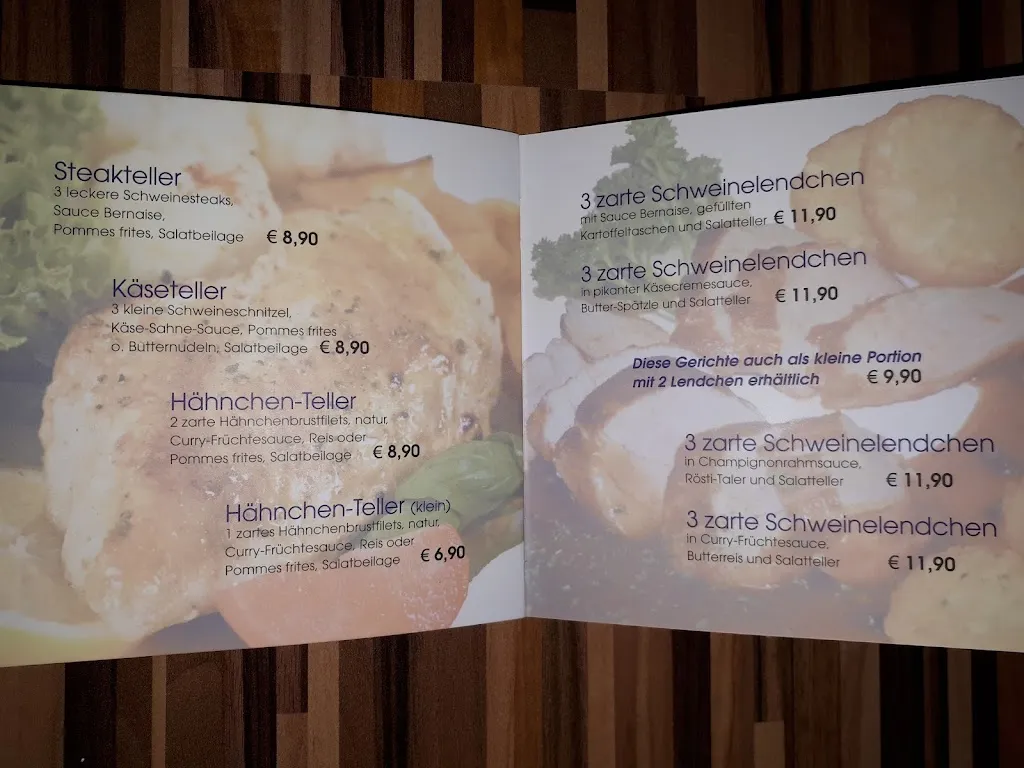 Steakteller
3 leckere Schweinesteaks,
Sauce Bernaise,
Pommes frites, Salatbeilage € 8,90
Käseteller
3 kleine Schweineschnitzel,
Käse-Sahne-Sauce, Pommes frites
o. Butternudeln, Salatbeilage € 8,90
Hähnchen-Teller
2 zarte Hähnchenbrustfilets, natur,
Curry-Früchtesauce, Reis oder
Pommes frites, Salatbeilage € 8,90
Hähnchen-Teller (klein)
1 zartes Hähnchenbrustfilets, natur,
Curry-Früchtesauce, Reis oder
Pommes frites, Salatbeilage € 6,90
3 zarte Schweinelendchen
mit Sauce Bernaise, gefüllten
Kartoffeltaschen und Salatteller € 11,90
3 zarte Schweinelendchen
in pikanter Käsecremesauce,
Butter-Spätzle und Salatteller € 11,90
Diese Gerichte auch als kleine Portion
mit 2 Lendchen erhältlich € 9,90
3 zarte Schweinelendchen
in Champignonrahmsauce,
Rösti-Taler und Salatteller € 11,90
3 zarte Schweinelendchen
in Curry-Früchtesauce,
Butterreis und Salatteller € 11,90